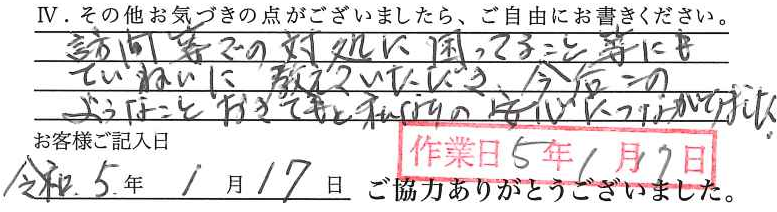 Ⅳ．その他お気づきの点がございましたら、ご自由にお書きください。
訪問等での対処に困ってること等にも
ていねいに教えていただき、今后この
ようなことおきてもと私なりの安心につながりました
お客様ご記入日
作業日5年1月17日
令和5年1月17日 ご協力ありがとうございました。